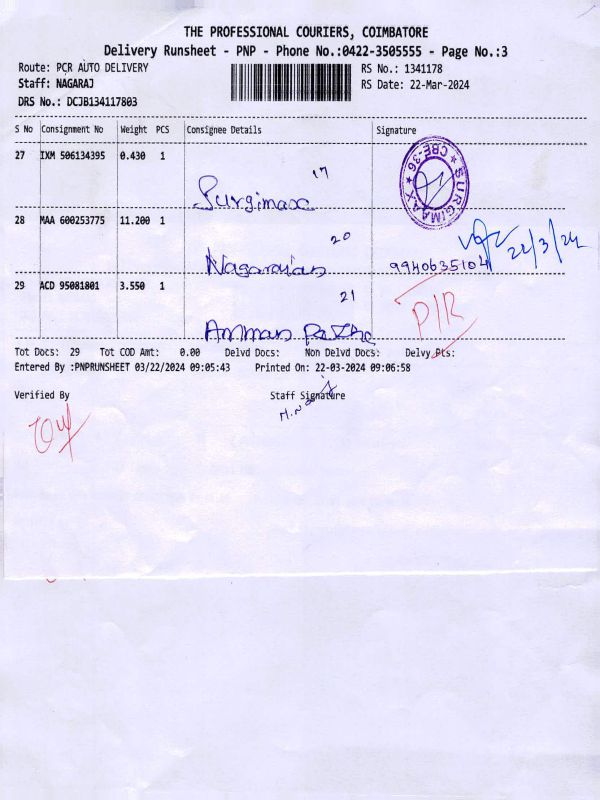 THE PROFESSIONAL COURIERS, COIMBATORE
Delivery Runsheet - PNP - Phone No.:0422-3505555 - Page No.:3
Route: PCR AUTO DELIVERY
RS No.: 1341178
Staff: NAGARAJ
RS Date: 22-Mar-2024
DRS No.: DCJB134117803
S No Consignment No Weight PCS Consignee Details Signature
27 IXM 506134395 0.430 1
17
Surgimax
SURGIMAAX
CBE-36
28 MAA 600253775 11.200 1
20
Nagarajan
9940635104
22/3/24
29 ACD 95081801 3.550 1
21
Amman
P/R
Tot Docs: 29 Tot COD Amt: 0.00 Delvd Docs: Non Delvd Docs: Delvy Pts:
Entered By :PNPRUNSHEET 03/22/2024 09:05:43 Printed On: 22-03-2024 09:06:58
Verified By Staff Signature